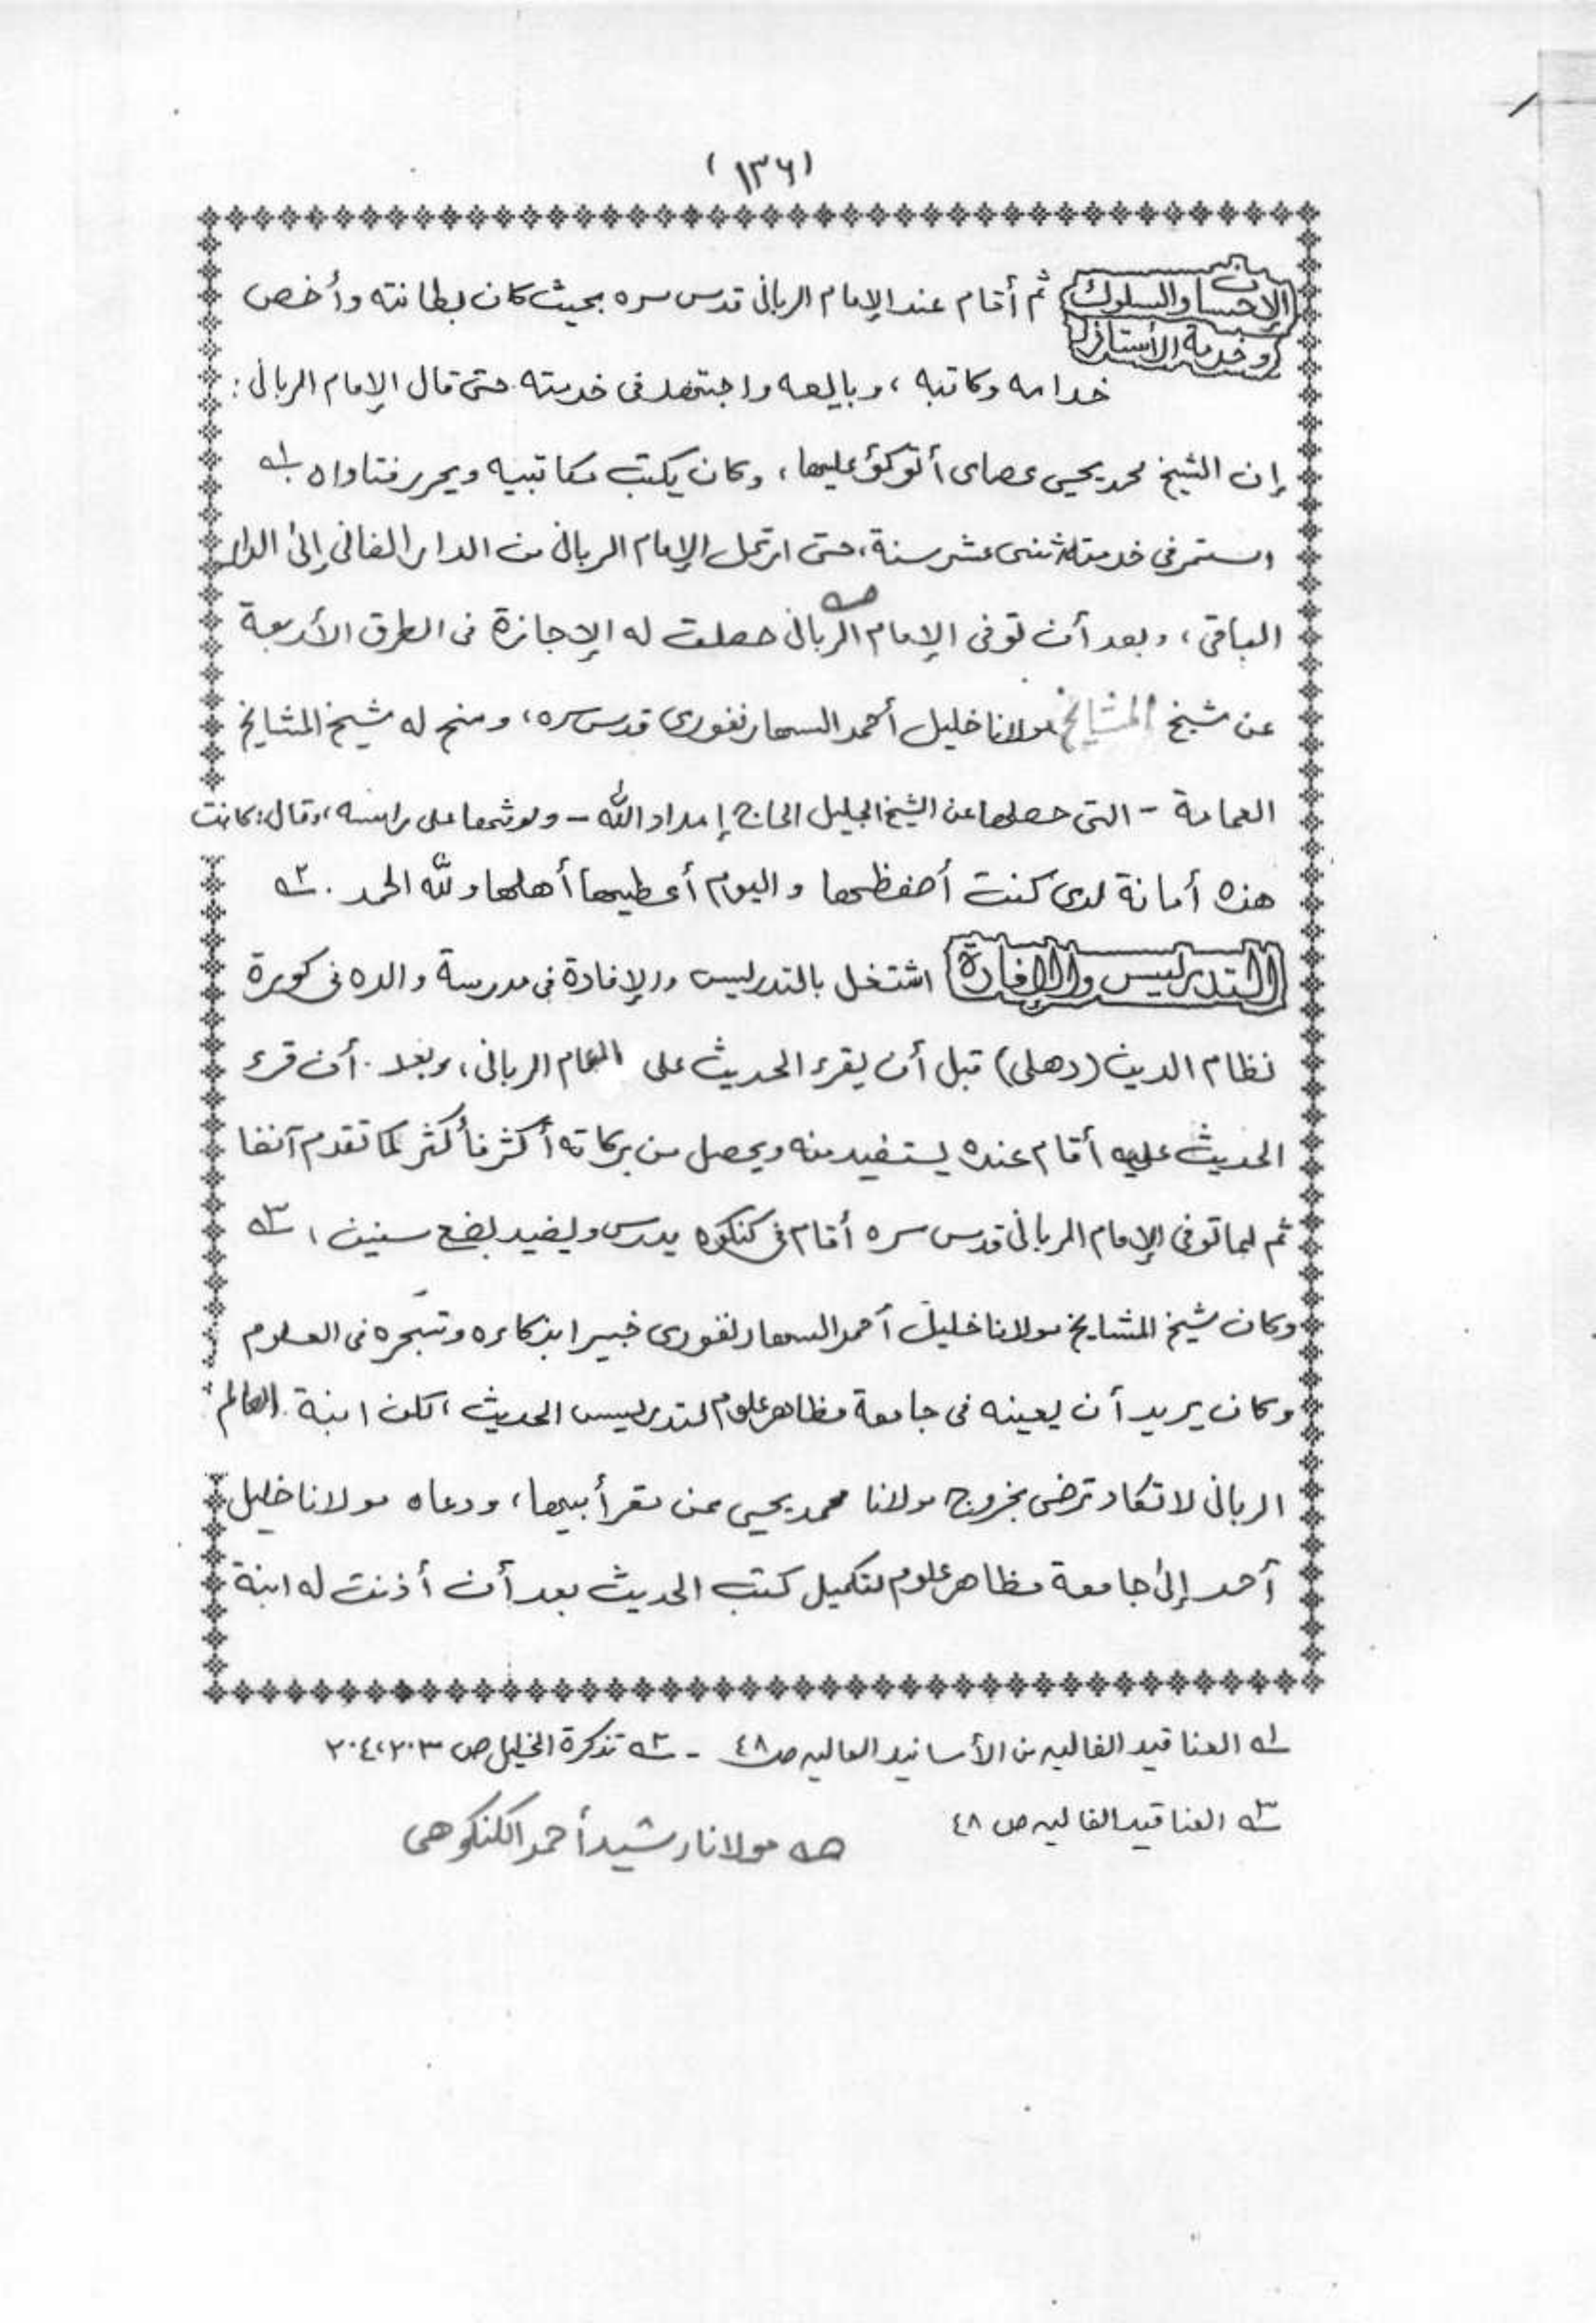 (١٣٦)
الإحسان والسلوك ثم أقام عند الإمام الربانى قدس سره بحيث كان بطانته وأخص
وخدمة الأستاذ
خدامه وكاتبه، وبايعه واجتهد فى خدمته حتى قال الإمام الربانى:
إن الشيخ محمد يحيى عصاى أتوكؤ عليها، وكان يكتب مكاتيبه ويحرر فتاواه ؂١
استمر في خدمته اثنى عشر سنة، حتى ارتحل الإمام الربانى من الدار الفانى إلى الدار
الباقى، وبعد أن توفى الإمام الربانى ؂ه حصلت له الإجازة فى الطرق الأربعة
عن شيخ المشايخ مولانا خليل أحمد السهارنفورى قدس سره، ومنح له شيخ المشايخ
العمامة - التى حصلها عن الشيخ الجليل الحاج إمداد الله - ولوثها على رأسه، وقال: كانت
هذه أمانة لدى كنت أحفظها واليوم أعطيها أهلها ولله الحمد. ؂٢
التدريس والإفادة اشتغل بالتدريس والإفادة فى مدرسة والده فى كورة
نظام الدين (دهلى) قبل أن يقرء الحديث على الإمام الربانى، وبعد أن قرء
الحديث عليه أقام عنده يستفيد منه ويحصل من بركاته أكثر فأكثر كما تقدم آنفا
ثم لما توفى الإمام الربانى قدس سره أقام فى كنكوه يدرس ويفيد بضع سنين، ؂٣
وكان شيخ المشايخ مولانا خليل أحمد السهارنفورى خبيرا بذكاءه وتبحره فى العلوم
وكان يريد أن يعينه فى جامعة مظاهر علوم لتدريس الحديث، لكن ابنة العالم
الربانى لا تكاد ترضى بخروج مولانا محمد يحيى عن مقر أبيها، ودعاه مولانا خليل
أحمد إلى جامعة مظاهر علوم لتكميل كتب الحديث بعد أن أذنت له ابنة
؂١ العناقيد الغاليه من الأسانيد العاليه ص ٤٨ - ؂٢ تذكرة الخليل ص ٢٠٣، ٢٠٤
؂٣ العناقيد الغاليه ص ٤٨
؂ه مولانا رشيد أحمد الكنكوهى